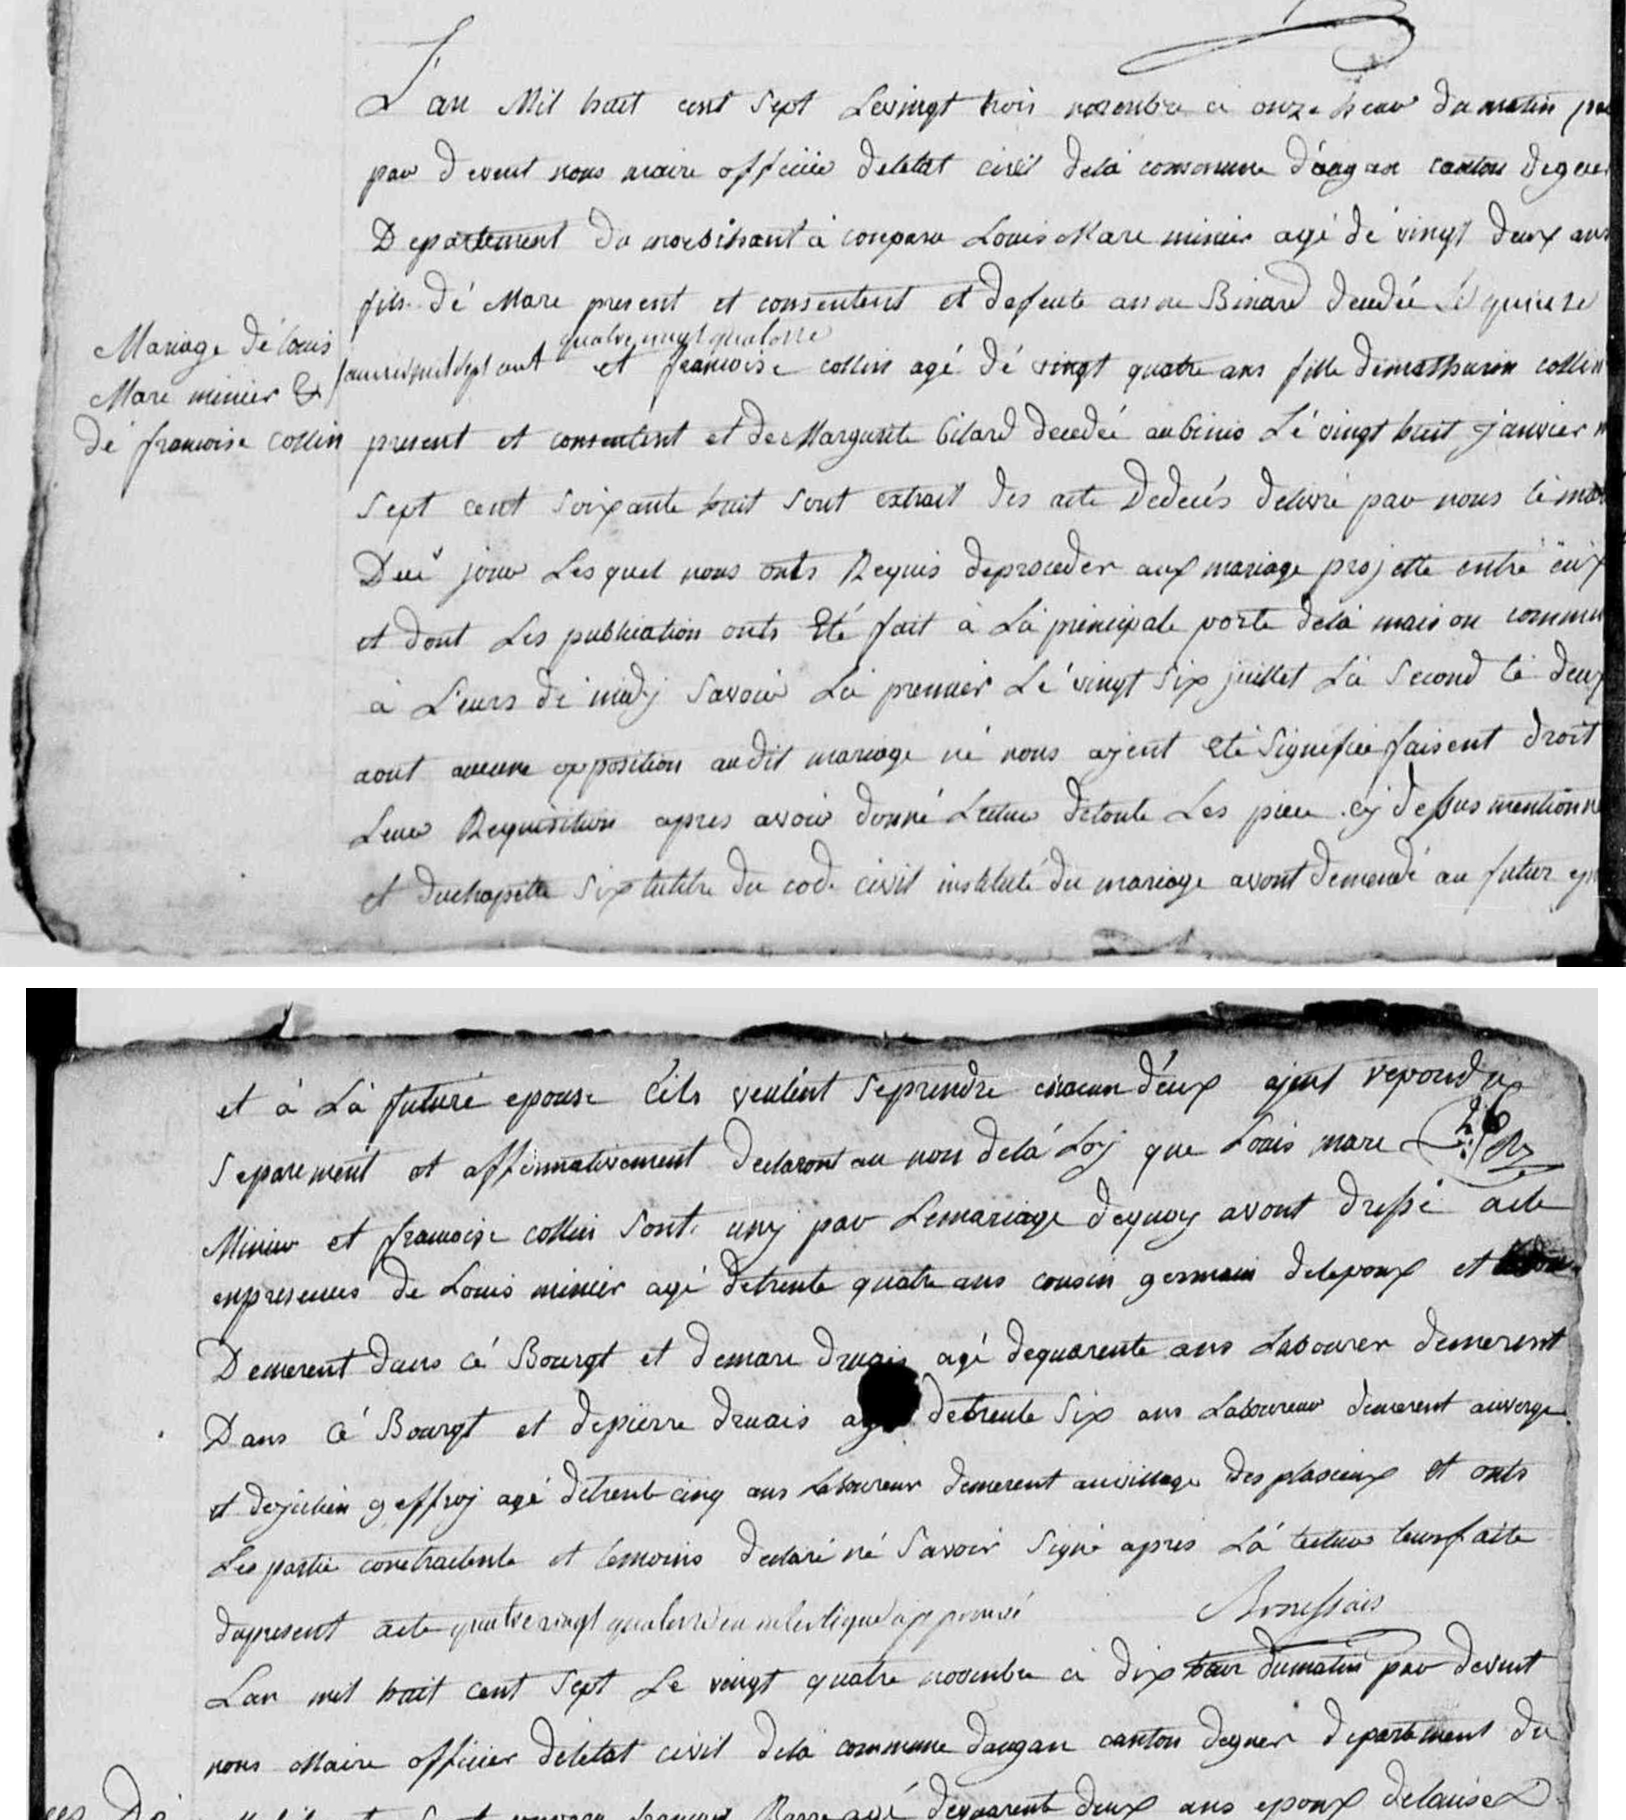 L'an Mil huit cent sept Levingt trois novembre a onze heur du matin
par devent nous maire officiie deletat civil dela commune d'augan canton deguer
Departement du morbihant à comparu Louis Mare minier agé dé vingt deux ans
fils dé Mare present et consentent et defeute anne Binard decedée le quinze
quatre vingt quatorze
Mariage dé louis
Mare minier &
dé francoise collin
et francoise collin agé dé vingt quatre ans fille demathurin collin
present et consentent et de Margurite Gilard decedée Lé vingt huit janvier
sept cent soixante huit sont extrait des acte Dedecés delivré par nous lé
jour Lesquel nous onts Requis deproceder aux mariage projette entré eux
et dont Les publication onts Eté fait à Là principale porte dela maison commu
à L'eurs dé midj savoir Là premier Lé vingt six juillet Là second lé deux
aout aucune opposition audit mariage né nous ajent Eté Signefiee faisent droit
Leur Requisition apres avoir donné Lectur detoute Les piece cy dessus mentionne
et duchapitre six tutitre du code civil institulé du mariage avont demendé au futur
et à Là futuré epouse s'ils veulent seprendre chacun d'eux ajent repondu
Separement et affirmativement declaront au nom dela Loy que Louis mare
Minier et francoise collin sont uny par Lemariage dequoy avont dressé acte
enpresences de Louis minier agé detrente quatre ans cousin germain delepoux et
Demerent dans cé Bourgt et demare druais agé dequarente ans Labourer demerent
Dans cé Bourgt et depierre druais agé detrente six ans Laboureur demerent
et dejulien geffroj agé detrente cinq ans Laboureur demerent auvillage des et onts
Les partie contractente et temoins declaré né savoir signé apres Lá lectur leurfaite
dupresent acte quatre vingt quatorze en interligne approuvé
Lan mil huit cent sept Le vingt quatre novembre a dix heur dumatin par devent
nous Maire officier deletat civil delà commune daugan canton deguer departement du
agé dequarente deux ans epoux